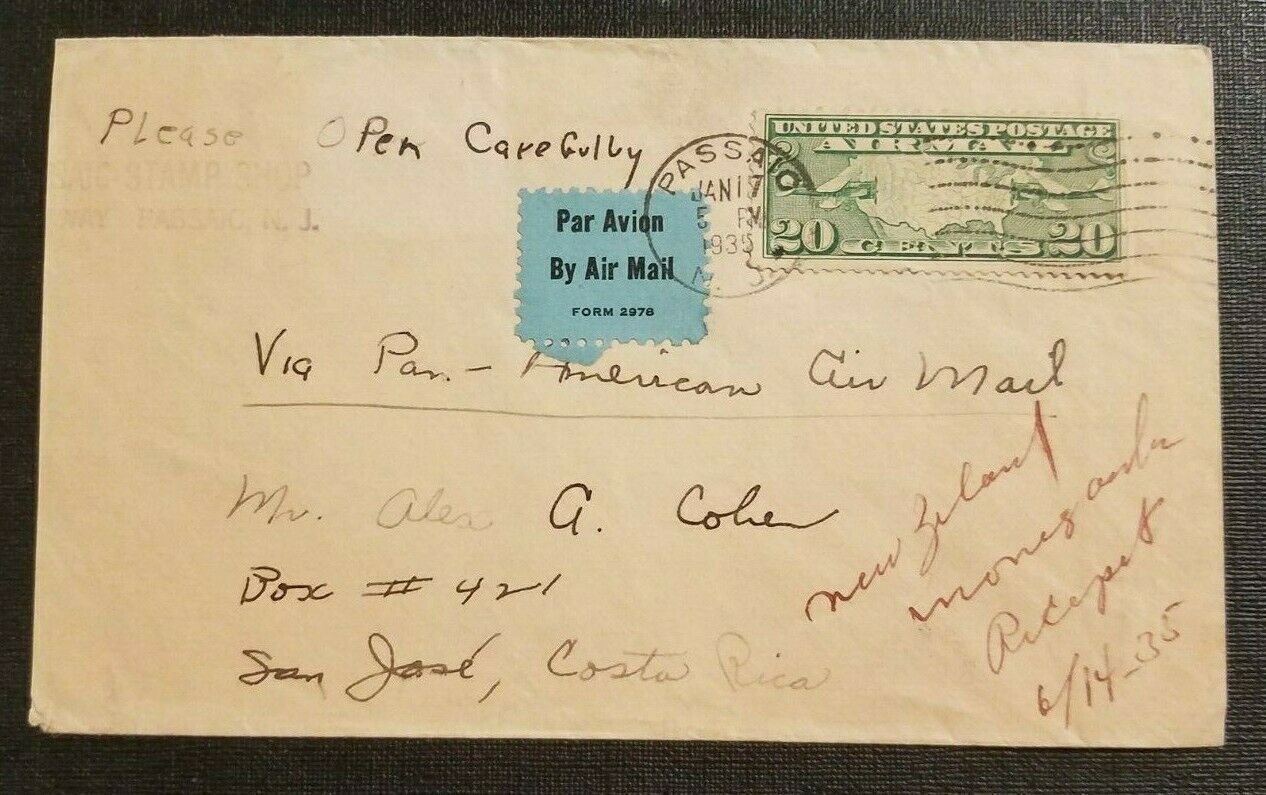 Please Open Carefully
STAMP SHOP
WAY PASSAIC, N. J.
UNITED STATES POSTAGE
AIR MAIL
20 CENTS 20
PASSAIC
JAN 17
5 PM
1935
N. J.
Par Avion
By Air Mail
FORM 2978
Via Pan-American Air Mail
Mr. Alex A. Cohen
Box # 421
San José, Costa Rica
new Zeland
money order
Receipt
6/14-35